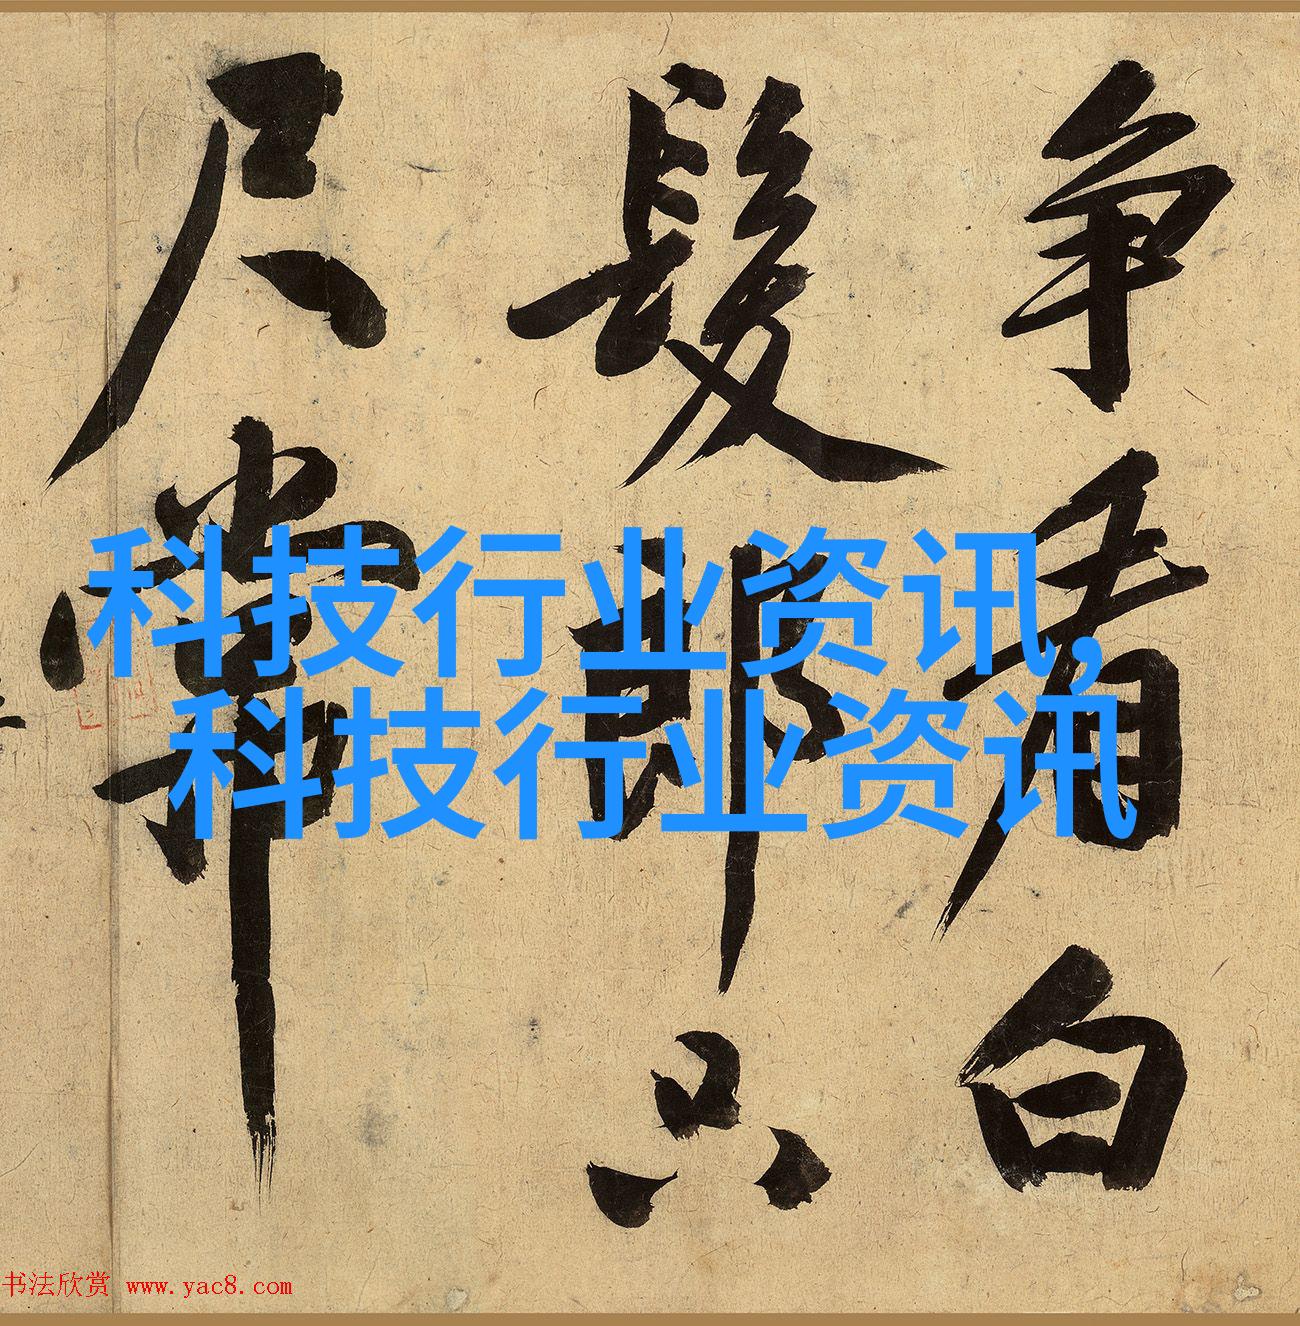 争看白
髮郎只
尺常
科技行业资讯,
科技行业资讯
书法欣赏 www.yac8.com